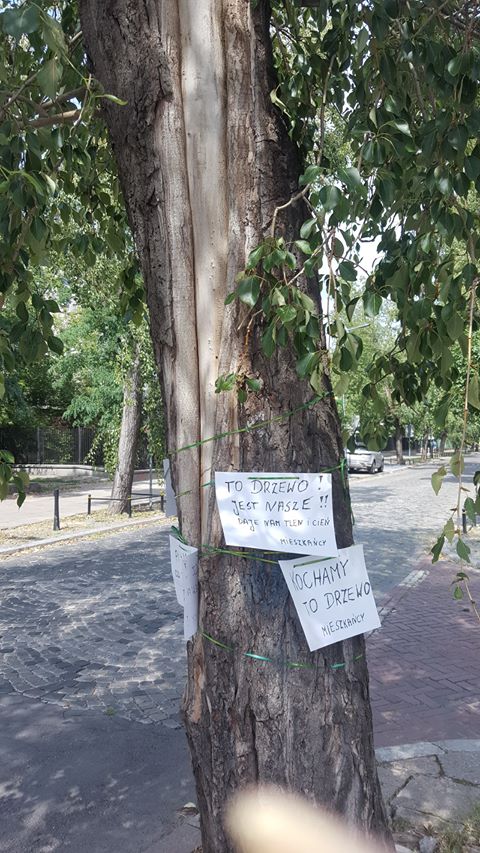 TO DRZEWO !
JEST NASZE !!
DAJE NAM TLEN I CIEŃ
MIESZKAŃCY
KOCHAMY
TO DRZEWO
MIESZKAŃCY